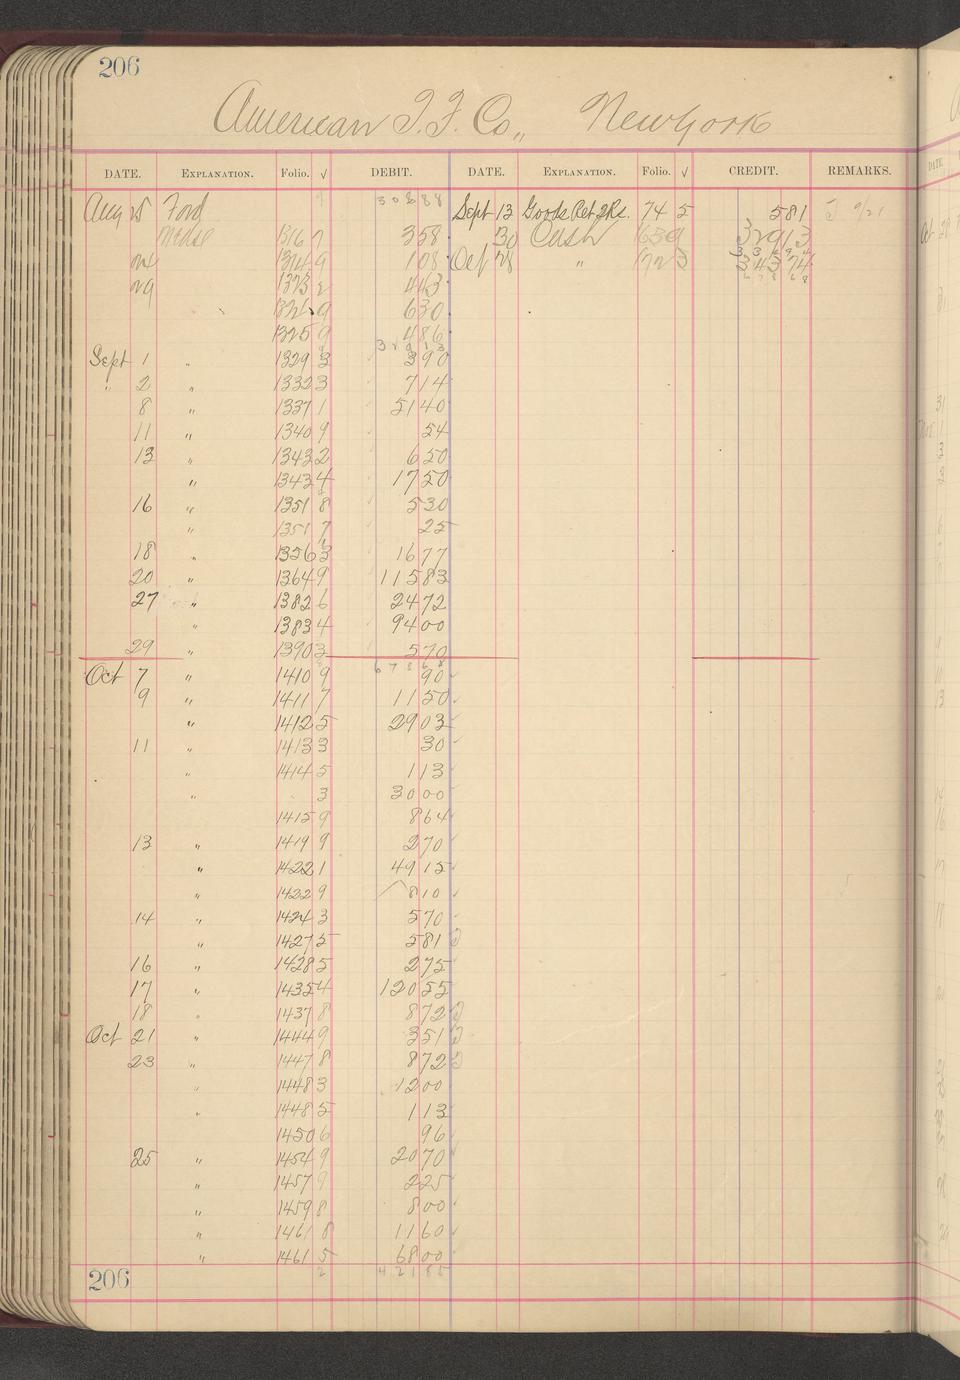 206
American T. F. Co., New York
DATE. EXPLANATION. Folio. √ DEBIT. DATE. EXPLANATION. Folio. √ CREDIT. REMARKS.
Aug 25 Ford 308 88 Sept 13 Goods Ret 2Rs. 74 5 5 81
Mdse 1316 7 3 58 30 Cash 639 329 13
1314 9 1 08 Oct 28 " 723 343 74
29 1323 2 4 43
9 6 30
1325 9 4 86
329 13
Sept 1 " 1329 3 3 90
" 2 " 1332 3 7 14
8 " 1337 1 51 40
11 " 1340 9 54
13 " 1343 2 6 50
" 1343 4 17 50
16 " 1351 8 5 30
" 1351 7 25
18 " 1356 3 16 77
20 " 1364 9 115 83
27 " 1382 6 24 72
" 1383 4 94 00
29 " 1390 3 5 70
678 68
Oct 7 " 1410 9 90
9 " 1411 7 11 50
" 1412 5 29 03
11 " 1413 3 30
" 1414 5 1 13
" 3 30 00
1415 9 8 64
13 " 1419 9 2 70
" 1422 1 49 15
" 1422 9 8 10
14 " 1424 3 5 70
" 1427 5 5 81
16 " 1428 5 2 75
17 " 1435 4 120 55
18 " 1437 8 8 72
Oct 21 " 1444 9 3 51
23 " 1447 8 8 72
" 1448 3 12 00
" 1448 5 1 13
1450 6 96
25 " 1454 9 20 70
" 1457 9 2 25
" 1459 8 8 00
" 1461 8 11 60
" 1461 5 68 00
421 85
206